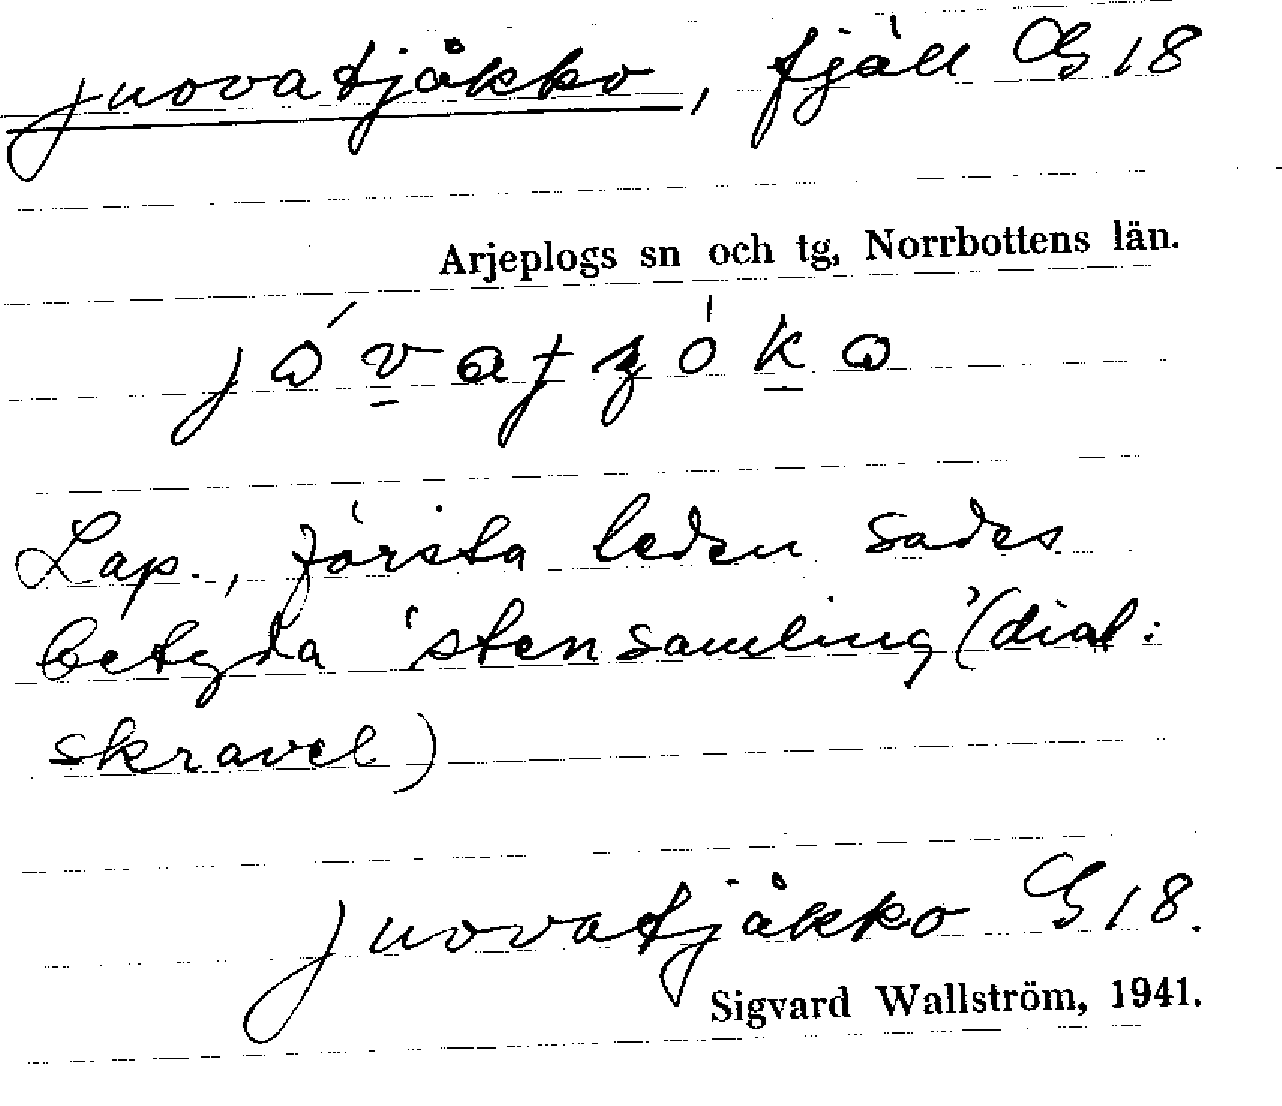 Juovatjåkko, fjäll G 18
Arjeplogs sn och tg, Norrbottens län.
Lap., första leden sades
betyda 'stensamling' (dial:
skravel)
Juovatjåkko G 18.
Sigvard Wallström, 1941.